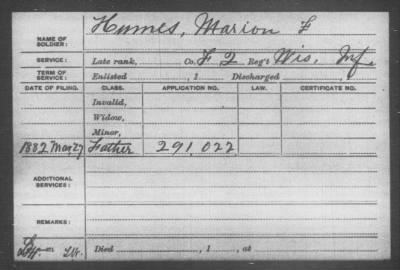 NAME OF SOLDIER: Humes, Marion F
SERVICE: Late rank, Co. F 2 Reg't Wis. Inf.
TERM OF SERVICE: Enlisted , 1 Discharged
DATE OF FILING. CLASS. APPLICATION NO. LAW. CERTIFICATE NO.
Invalid,
Widow,
Minor,
1882 Mar 27 Father 291,022
ADDITIONAL SERVICES:
REMARKS:
Died , 1 , at